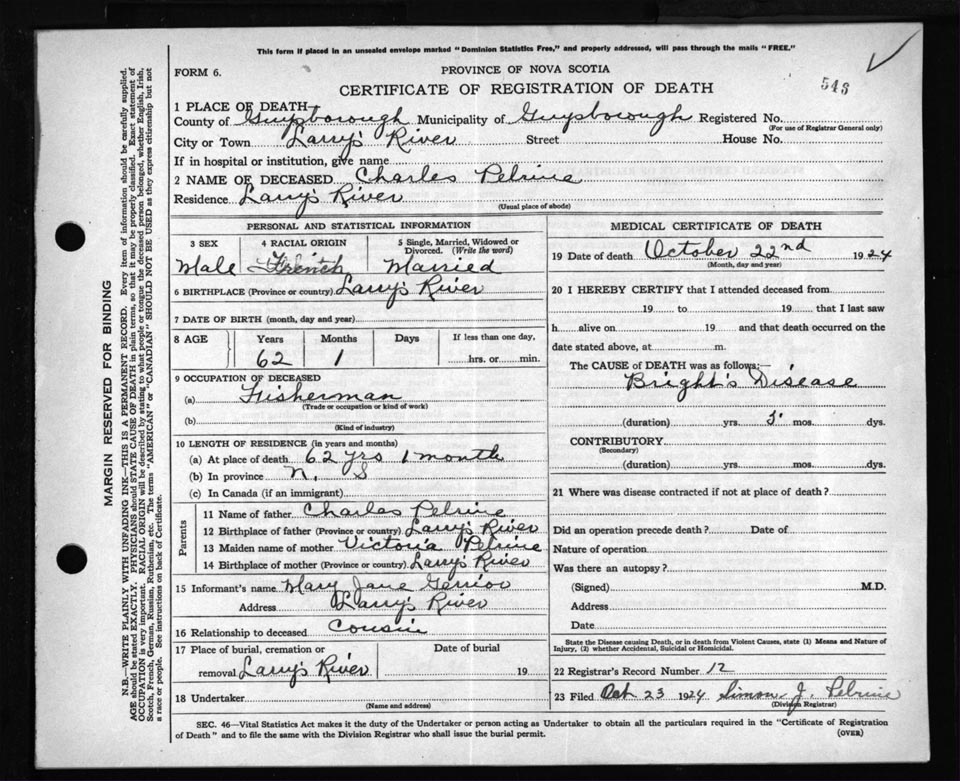 This form if placed in an unsealed envelope marked "Dominion Statistics Free," and properly addressed, will pass through the mails "FREE."
FORM 6.
PROVINCE OF NOVA SCOTIA
543
CERTIFICATE OF REGISTRATION OF DEATH
1 PLACE OF DEATH
County of Guysborough Municipality of Guysborough Registered No.
(For use of Registrar General only)
City or Town Larry's River Street House No.
If in hospital or institution, give name
2 NAME OF DECEASED Charles Pelrine
Residence Larry's River
(Usual place of abode)
PERSONAL AND STATISTICAL INFORMATION
3 SEX 4 RACIAL ORIGIN 5 Single, Married, Widowed or Divorced. (Write the word)
Male French Married
6 BIRTHPLACE (Province or country) Larry's River
7 DATE OF BIRTH (month, day and year)
8 AGE Years Months Days If less than one day,
62 1 hrs. or min.
9 OCCUPATION OF DECEASED
(a) Fisherman
(Trade or occupation or kind of work)
(b)
(Kind of industry)
10 LENGTH OF RESIDENCE (in years and months)
(a) At place of death 62 yrs 1 month
(b) In province N. S
(c) In Canada (if an immigrant)
Parents
11 Name of father Charles Pelrine
12 Birthplace of father (Province or country) Larry's River
13 Maiden name of mother Victoria Pelrine
14 Birthplace of mother (Province or country) Larry's River
15 Informant's name Mary Jane Gerrior
Address Larry's River
16 Relationship to deceased Cousin
17 Place of burial, cremation or Date of burial
removal Larry's River 19
18 Undertaker
(Name and address)
MEDICAL CERTIFICATE OF DEATH
19 Date of death October 22nd 1924
(Month, day and year)
20 I HEREBY CERTIFY that I attended deceased from
19 to 19 that I last saw
h alive on 19 and that death occurred on the
date stated above, at m.
The CAUSE OF DEATH was as follows:—
Bright's Disease
(duration) yrs. 5 mos. dys.
CONTRIBUTORY
(Secondary)
(duration) yrs. mos. dys.
21 Where was disease contracted if not at place of death?
Did an operation precede death? Date of
Nature of operation
Was there an autopsy?
(Signed) M.D.
Address
Date
State the Disease causing Death, or in death from Violent Causes, state (1) Means and Nature of
Injury, (2) whether Accidental, Suicidal or Homicidal.
22 Registrar's Record Number 12
23 Filed Oct 23 1924 Simon J. Pelrine
(Division Registrar)
SEC. 46—Vital Statistics Act makes it the duty of the Undertaker or person acting as Undertaker to obtain all the particulars required in the "Certificate of Registration
of Death" and to file the same with the Division Registrar who shall issue the burial permit.
(OVER)
MARGIN RESERVED FOR BINDING
N.B.—WRITE PLAINLY WITH UNFADING INK—THIS IS A PERMANENT RECORD. Every item of information should be carefully supplied.
AGE should be stated EXACTLY. PHYSICIANS should STATE CAUSE OF DEATH in plain terms, so that it may be properly classified. Exact statement of
OCCUPATION is very important. RACIAL ORIGIN will be described by stating to what people or tongue the deceased person belonged, whether English, Irish,
Scotch, French, German, Russian, Ruthenian, etc. The terms "AMERICAN" or "CANADIAN" SHOULD NOT BE USED as they express citizenship but not
a race or people. See instructions on back of Certificate.